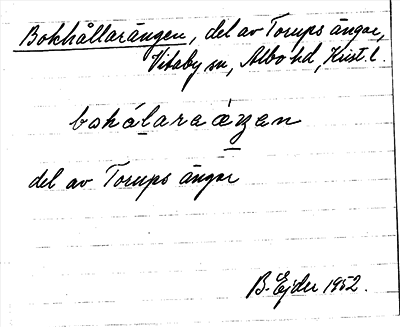 Bokhållarängen, del av Torups ängar,
Vitaby sn, Albo hd, Krist. l.
bokálaraæ̀ŋen
del av Torups ängar
B. Ejder 1952.